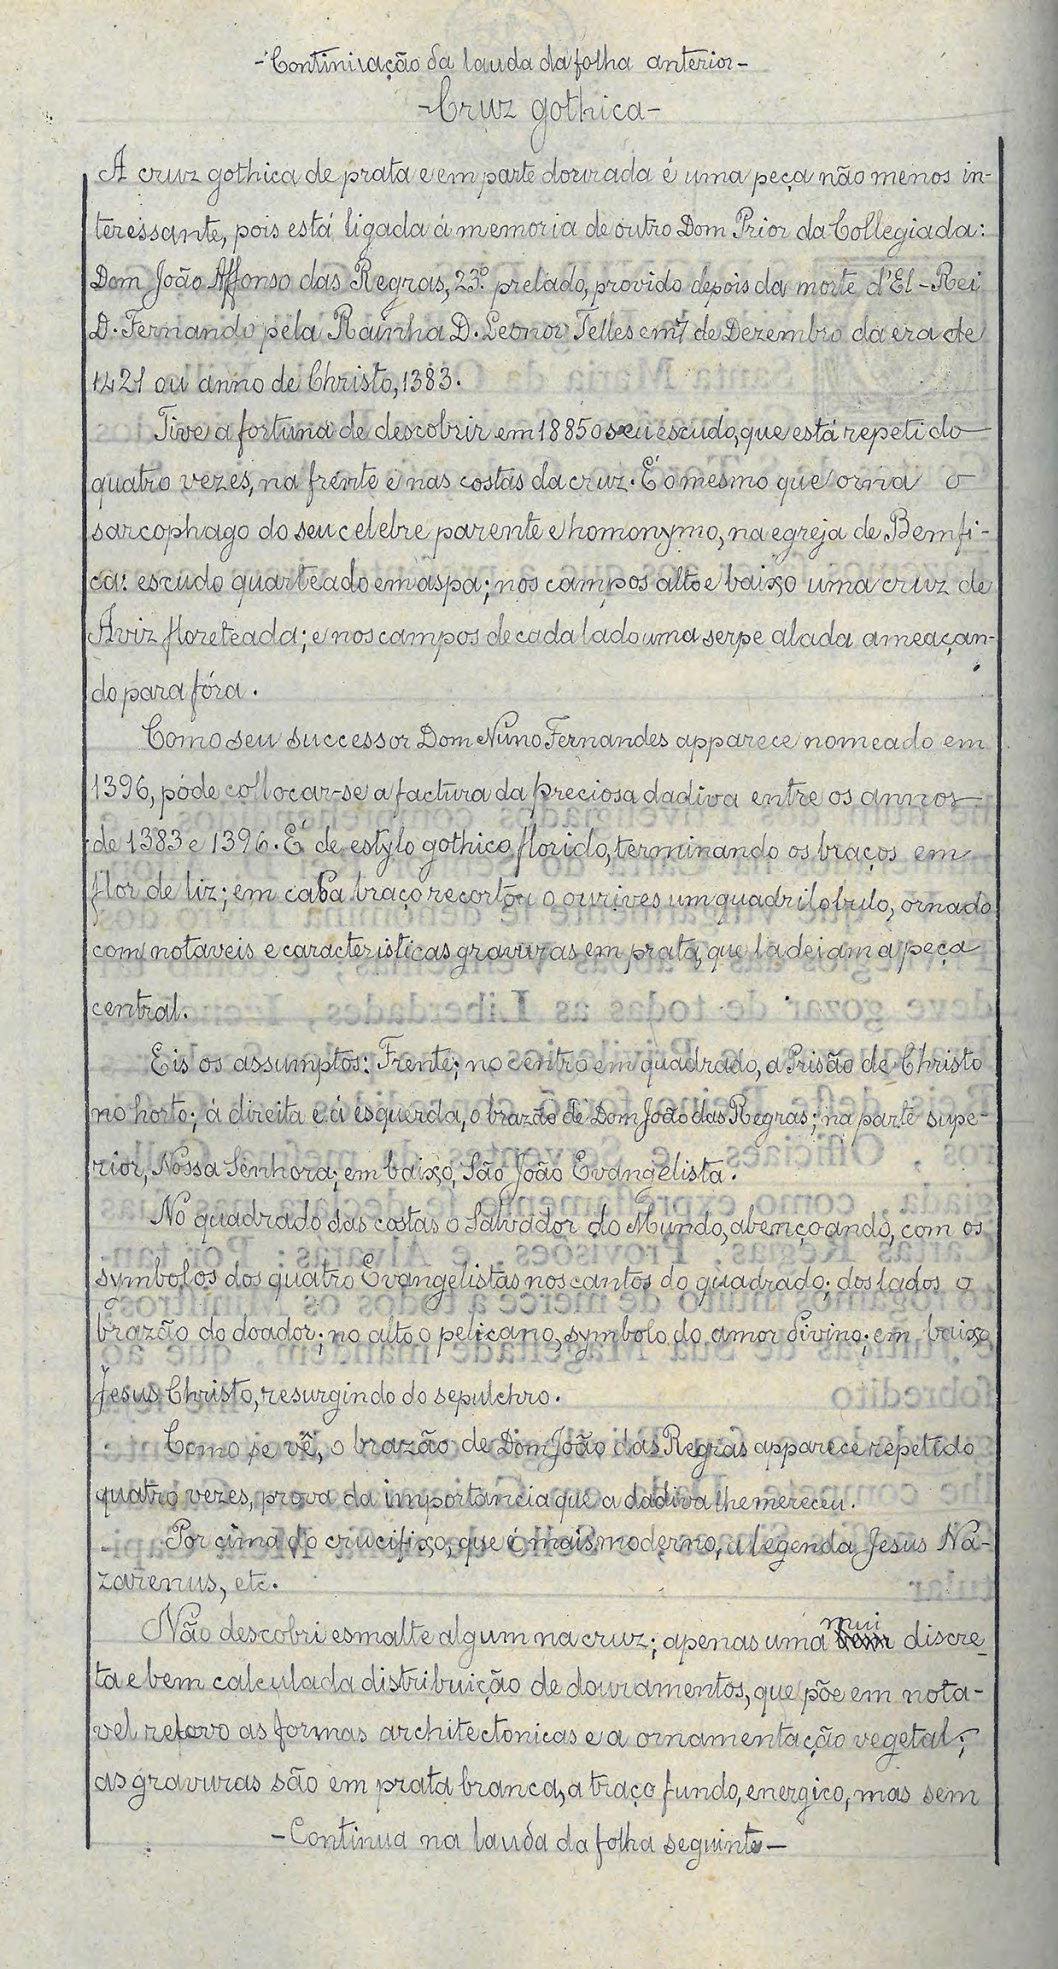 - Continuação da lauda da folha anterior -
- Cruz gothica -
A cruz gothica de prata e em parte dourada é uma peça não menos in-
teressante, pois está ligada á memoria de outro Dom Prior da Collegiada:
Dom João Affonso das Regras, 23.º prelado, provido depois da morte d'El-Rei
D. Fernando pela Rainha D. Leonor Telles em 7 de Dezembro da era de
1421 ou anno de Christo, 1383.
Tive a fortuna de descobrir em 1885 o seu escudo, que está repetido
quatro vezes, na frente e nas costas da cruz. É o mesmo que orna o
sarcophago do seu celebre parente e homonymo, na egreja de Bemfi-
ca: escudo quarteado em aspa; nos campos alto e baixo uma cruz de
Aviz floreteada; e nos campos de cada lado uma serpe alada ameaçan-
do para fóra.
Como seu successor Dom Nuno Fernandes apparece nomeado em
1396, póde collocar-se a factura da preciosa dadiva entre os annos
de 1383 e 1396. É de estylo gothico florido, terminando os braços em
flor de liz; em cada braço recortou o ourives um quadrilobulo, ornado
com notaveis e caracteristicas gravuras em prata, que ladeiam a peça
central.
Eis os assumptos: Frente; no centro em quadrado, a Prisão de Christo
no horto; á direita e á esquerda, o brazão de Dom João das Regras; na parte supe-
rior, Nossa Senhora; em baixo, São João Evangelista.
No quadrado das costas o Salvador do Mundo, abençoando, com os
symbolos dos quatro Evangelistas nos cantos do quadrado; dos lados o
brazão do doador; no alto o pelicano, symbolo do amor divino; em baixo
Jesus Christo, resurgindo do sepulchro.
Como se vê, o brazão de Dom João das Regras apparece repetido
quatro vezes, prova da importancia que a dadiva lhe mereceu.
Por cima do crucifixo, que é mais moderno, a legenda Jesus Na-
zarenus, etc.
Não descobri esmalte algum na cruz; apenas uma mui discre-
ta e bem calculada distribuição de douramentos, que põe em nota-
vel relevo as formas architectonicas e a ornamentação vegetal;
as gravuras são em prata branca, a traço fundo, energico, mas sem
- Continua na lauda da folha seguinte -